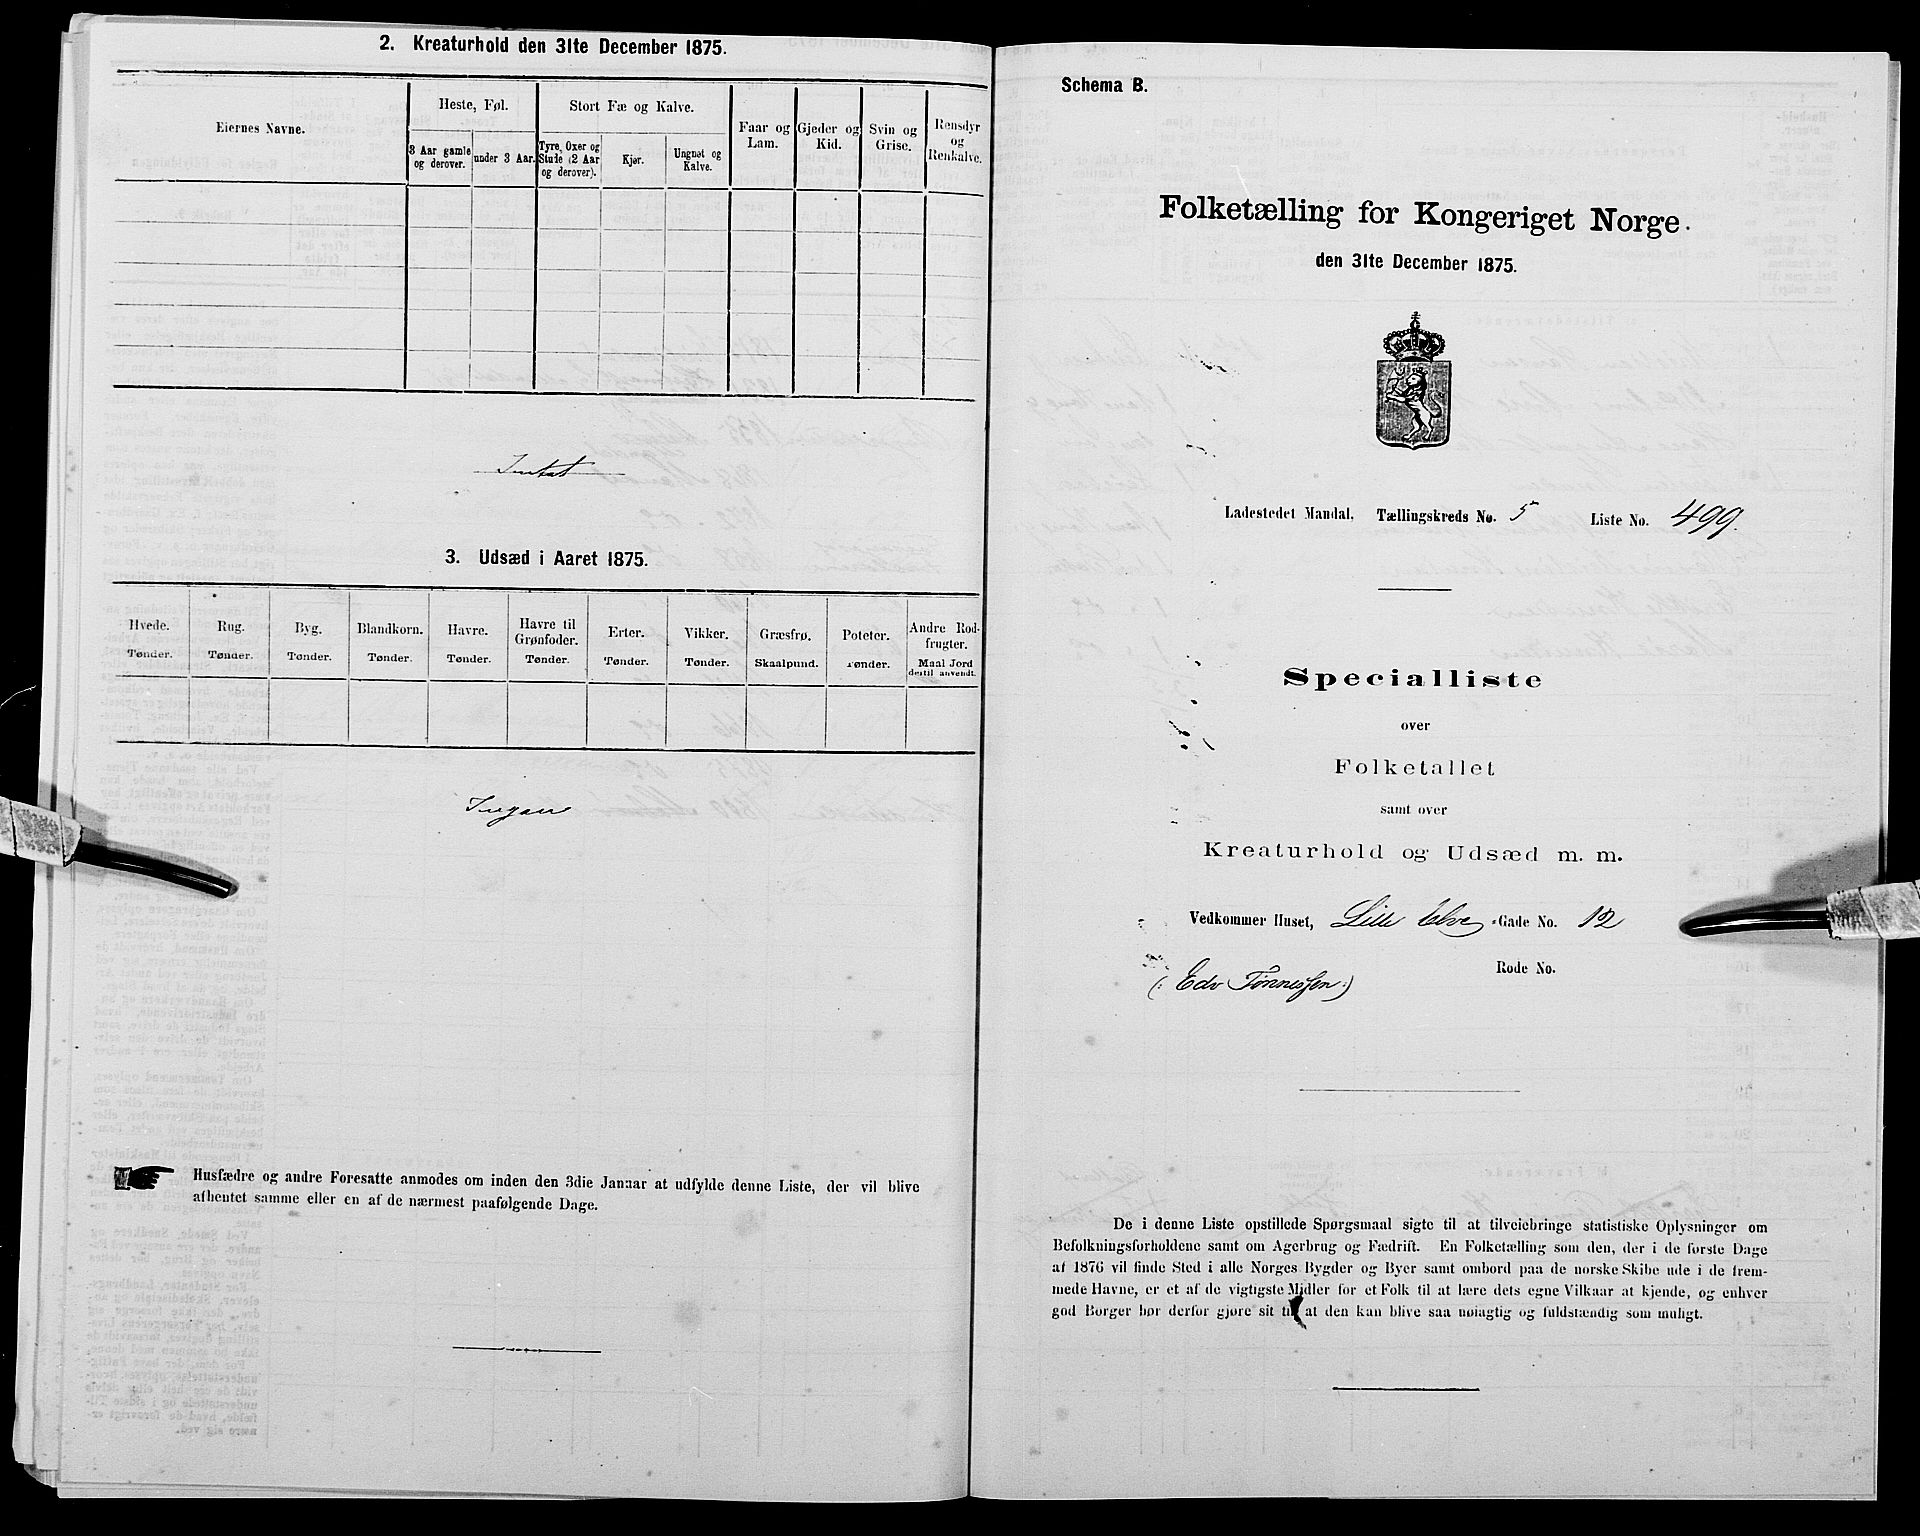 2. Kreaturhold den 31te December 1875.
Eiernes Navne.
Heste, Føl.
Stort Fæ og Kalve.
Faar og Lam.
Gjeder og Kid.
Svin og Grise.
Rensdyr og Renkalve.
3 Aar gamle og derover.
under 3 Aar.
Tyre, Oxer og Stude (2 Aar og derover).
Kjør.
Ungnøt og Kalve.
Intet
3. Udsæd i Aaret 1875.
Hvede. Rug. Byg. Blandkorn. Havre. Havre til Grønfoder. Erter. Vikker. Græsfrø. Poteter. Andre Rodfrugter.
Tønder. Tønder. Tønder. Tønder. Tønder. Tønder. Tønder. Tønder. Skaalpund. Tønder. Maal Jord dertil anvendt.
Ingen
Husfædre og andre Foresatte anmodes om inden den 3die Januar at udfylde denne Liste, der vil blive
afhentet samme eller en af de nærmest paafølgende Dage.
Schema B.
Folketælling for Kongeriget Norge.
den 31te December 1875.
Ladestedet Mandal, Tællingskreds No. 5 Liste No. 499.
Specialliste
over
Folketallet
samt over
Kreaturhold og Udsæd m. m.
Vedkommer Huset, Lille Elve-Gade No. 12
Rode No.
(: Edv Tönnessen :)
De i denne Liste opstillede Spørgsmaal sigte til at tilveiebringe statistiske Oplysninger om
Befolkningsforholdene samt om Agerbrug og Fædrift. En Folketælling som den, der i de første Dage
af 1876 vil finde Sted i alle Norges Bygder og Byer samt ombord paa de norske Skibe ude i de frem-
mede Havne, er et af de vigtigste Midler for et Folk til at lære dets egne Vilkaar at kjende, og enhver
god Borger bør derfor gjøre sit til at den kan blive saa nøiagtig og fuldstændig som muligt.